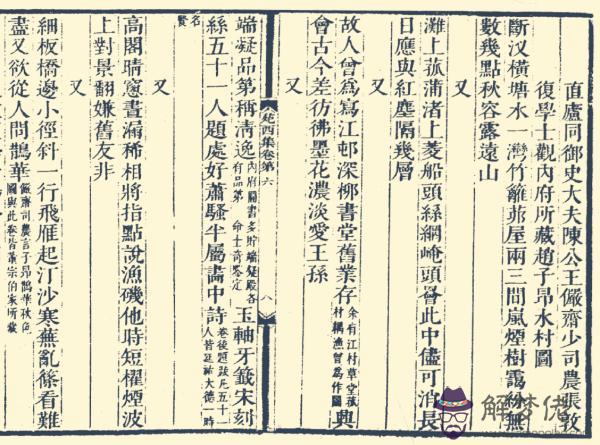 直廬同御史大夫陳公王儼齋少司農張敦
復學士觀內府所藏趙子昂水村圖
斷汊橫塘水一灣竹籬茆屋兩三間嵐煙樹靄紛無
數幾點秋容露遠山
又
灘上菰蒲渚上菱船頭絲網崦頭罾此中儘可消長
日應與紅塵隔幾層
又
故人曾爲寫江邨深栁書堂舊業存余有江村草堂 村耦漁曾爲作圖興
會古今差彷彿墨花濃淡愛王孫
又
苑西集卷第六 八
端凝品第稱清逸內府圖書多貯端凝殿各有品第 命士奇鑒定玉軸牙籤宋刻
絲五十一人題處好蕭騷半屬畵中詩卷後題跋凡五十一人皆延祐大德一時
名賢
又
高閣晴窻晝漏稀相將指點說漁磯他時短櫂煙波
上對景翻嫌舊友非
又
細板橋邊小徑斜一行飛雁起汀沙寒蕪亂篠看難
盡又欲從人問鵲華儼齋司農言子昂鵲華秋色圖與此卷皆蕭宗伯家所藏
解梦佬